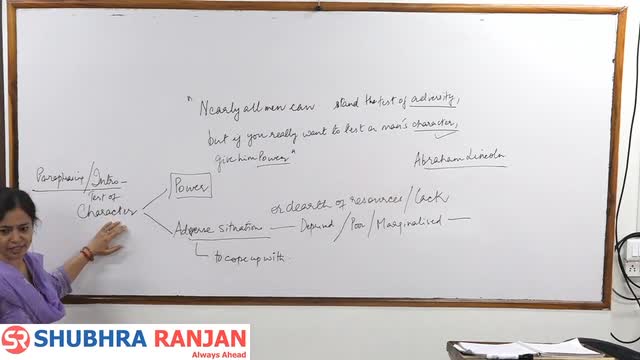 " Nearly all men can stand the test of adversity,
but if you really want to test a man's character,
give him Power "
Abraham Lincoln
Paraphrasing / Intro -
Test of
Character
Power
or dearth of resources / Lack
Adverse situation — Deprived / Poor / Marginalised —
to cope up with
SR SHUBHRA RANJAN
Always Ahead